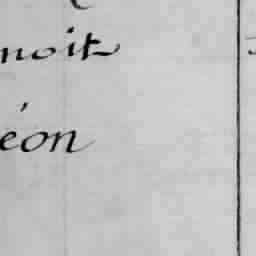 noit
éon